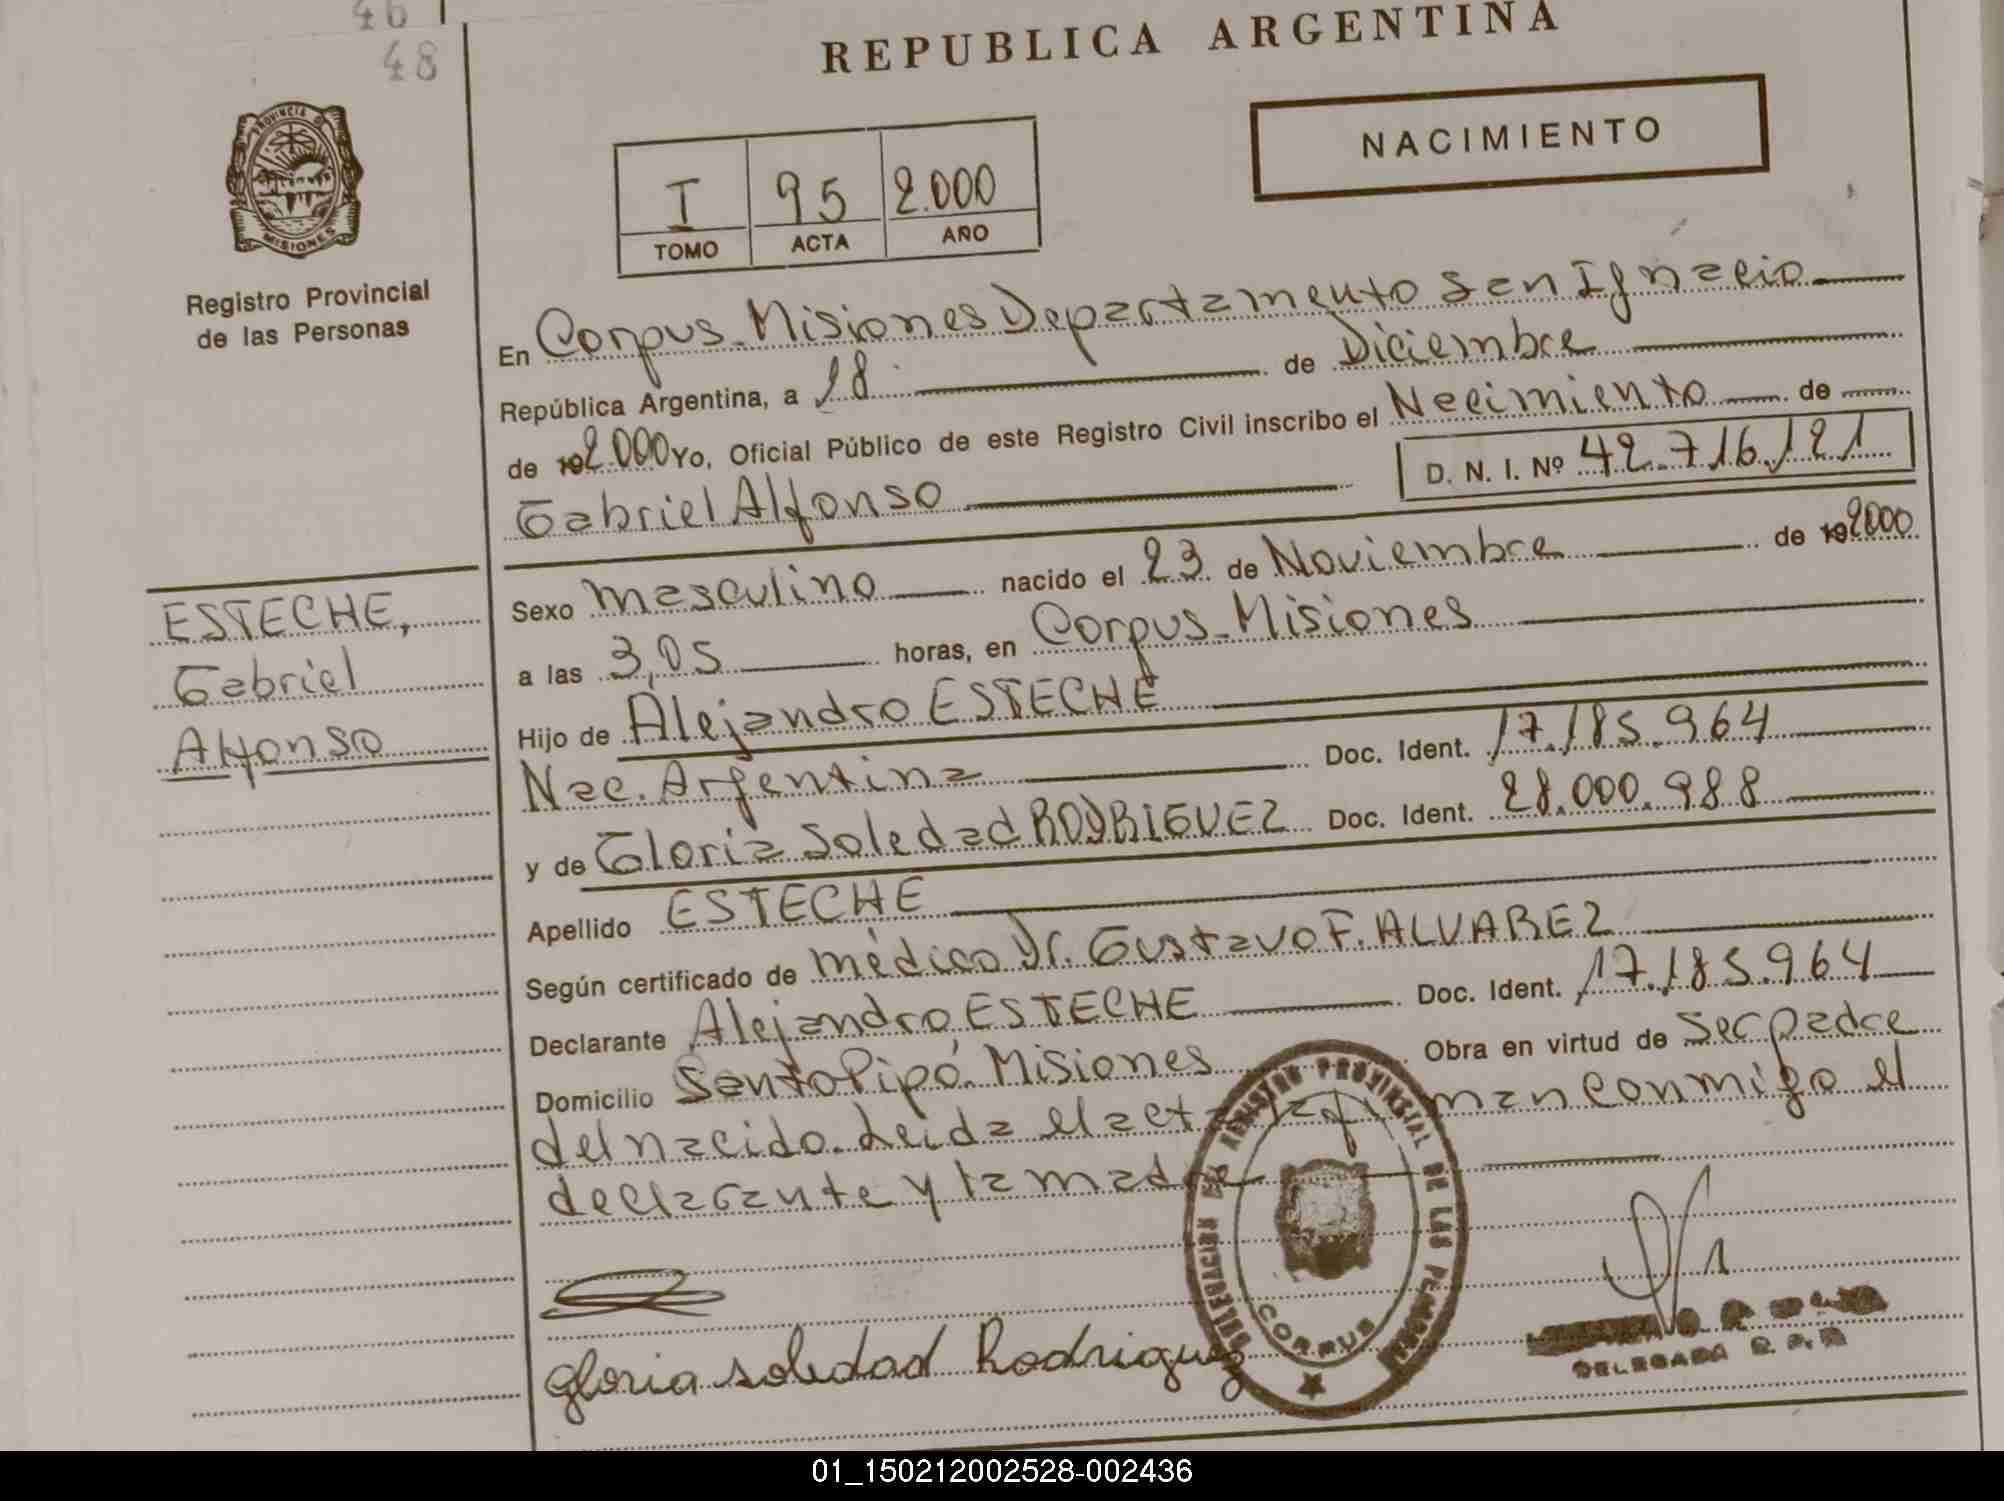 46
48
REPUBLICA ARGENTINA
NACIMIENTO
PROVINCIA D
MISIONES
Registro Provincial
de las Personas
I 95 2.000
TOMO ACTA AÑO
En Corpus-Misiones Departamento San Ignacio
República Argentina, a 18 de Diciembre
de 192.000 Yo, Oficial Público de este Registro Civil inscribo el Nacimiento de
Gabriel Alfonso D. N. I. Nº 42.716.121
Sexo masculino nacido el 23 de Noviembre de 192000
a las 3,05 horas, en Corpus-Misiones
Hijo de Alejandro ESTECHE
Nac. Argentina Doc. Ident. 17.185.964
y de Gloria Soledad RODRIGUEZ Doc. Ident. 28.000.988
Apellido ESTECHE
Según certificado de médico Dr. Gustavo F. ALVAREZ
Declarante Alejandro ESTECHE Doc. Ident. 17.185.964
Domicilio Santo Pipó. Misiones Obra en virtud de ser padre
del nacido. Leida el acta la firman conmigo el
declarante y la madre
ESTECHE,
Gabriel
Alfonso
REGISTRO PROVINCIAL DE LAS
CORPUS
gloria soledad Rodriguez
DELEGADA R. P. P.
01_150212002528-002436